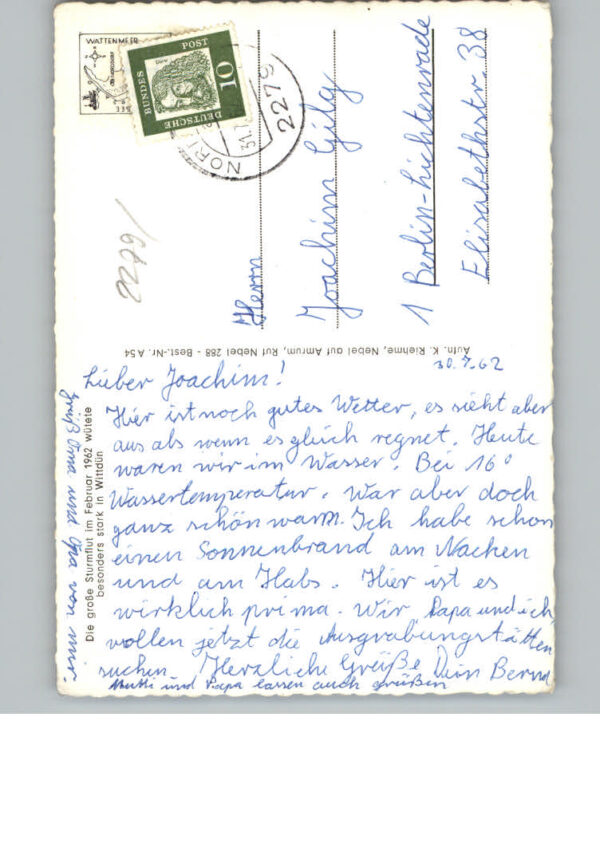 WATTENMEER
DEUTSCHE
BUNDES
POST
10
Dürer
NOR
31.7
2279
2279/
Herrn
Joachim Gilg
1 Berlin-Lichtenrade
Elisabethstr. 38
Aufn. K. Riehme, Nebel auf Amrum, Ruf Nebel 288 - Best.-Nr. A 54
30.7.62
Lieber Joachim!
Hier ist noch gutes Wetter, es sieht aber
aus als wenn es gleich regnet. Heute
waren wir im Wasser. Bei 16°
Wassertemperatur. War aber doch
ganz schön warm. Ich habe schon
einen Sonnenbrand am Nacken
und am Hals. Hier ist es
wirklich prima. Wir Papa und ich,
wollen jetzt die Ausgrabungstätten
suchen. Herzliche Grüße Dein Bernd
Mutti und Papa lassen auch grüßen
Grüß Oma und Opa von mir.
Die große Sturmflut im Februar 1962 wütete
besonders stark in Wittdün